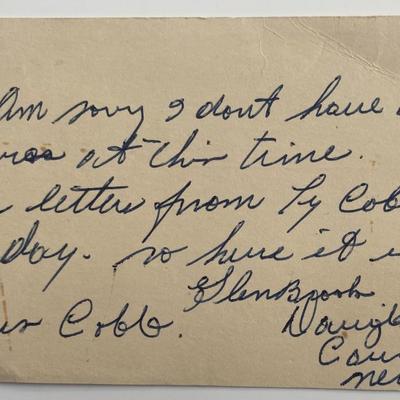 Am sorry I dont have
at this time.
letters from Ty Cob
day. so here it i
Glenbrook
Cobb. Dougl
Cou
Nev